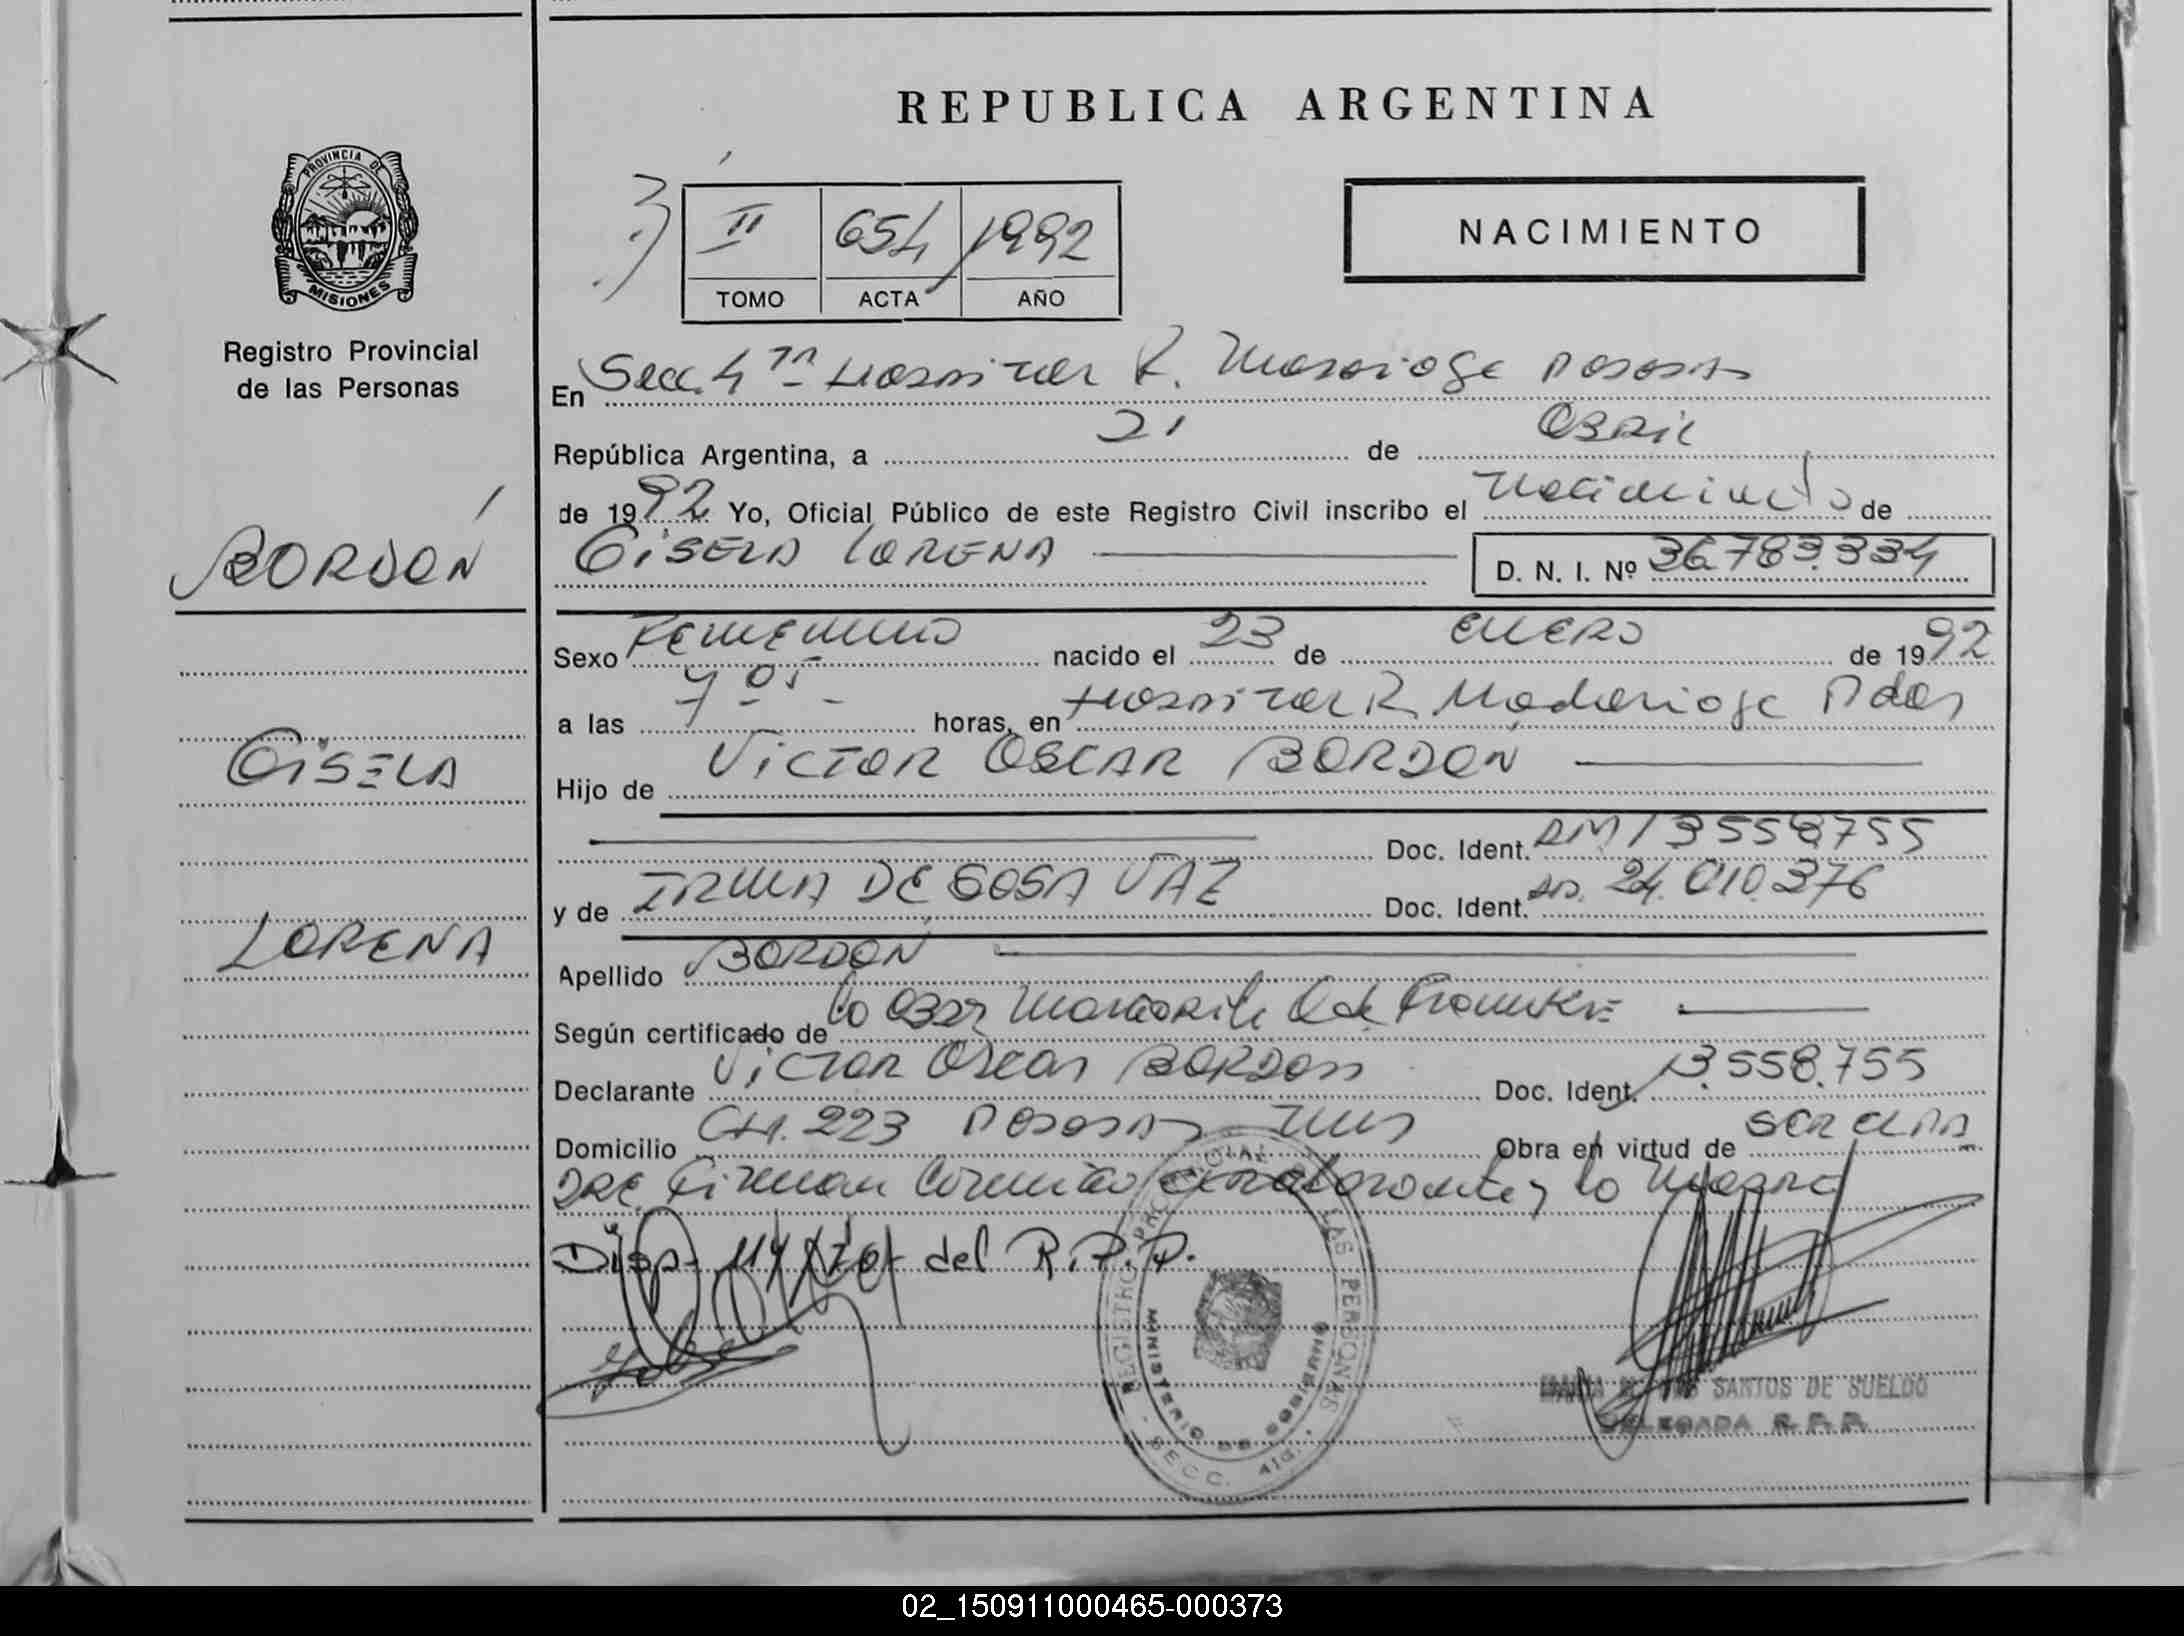 REPUBLICA ARGENTINA
PROVINCIA DE
MISIONES
Registro Provincial
de las Personas
BORDÓN
GISELA
LORENA
II 654 1992
TOMO ACTA AÑO
NACIMIENTO
En Secc. 4ta Hospital R. Madariaga Posadas
República Argentina, a 21 de Abril
de 1992 Yo, Oficial Público de este Registro Civil inscribo el Nacimiento de
GISELA LORENA D. N. I. Nº 36.783.334
Sexo Femenino nacido el 23 de ENERO de 1992
a las 7 05 horas, en Hospital R. Madariaga Pdas
Hijo de VICTOR OSCAR BORDON
Doc. Ident. DM 13558755
y de IRMA DE SOSA VAZ Doc. Ident. 24.010.376
Apellido BORDÓN
Según certificado de la
Declarante Victor Oscar BORDON Doc. Ident. 13.558.755
Domicilio CH. 223 Posadas Mns Obra en virtud de
Firman la
Disp. del R.P.P.
REGISTRO PROVINCIAL DE LAS PERSONAS
MINISTERIO DE GOBIERNO
SECC. 4ta.
SANTOS DE SUELDO
DELEGADA R.P.P.
02_150911000465-000373